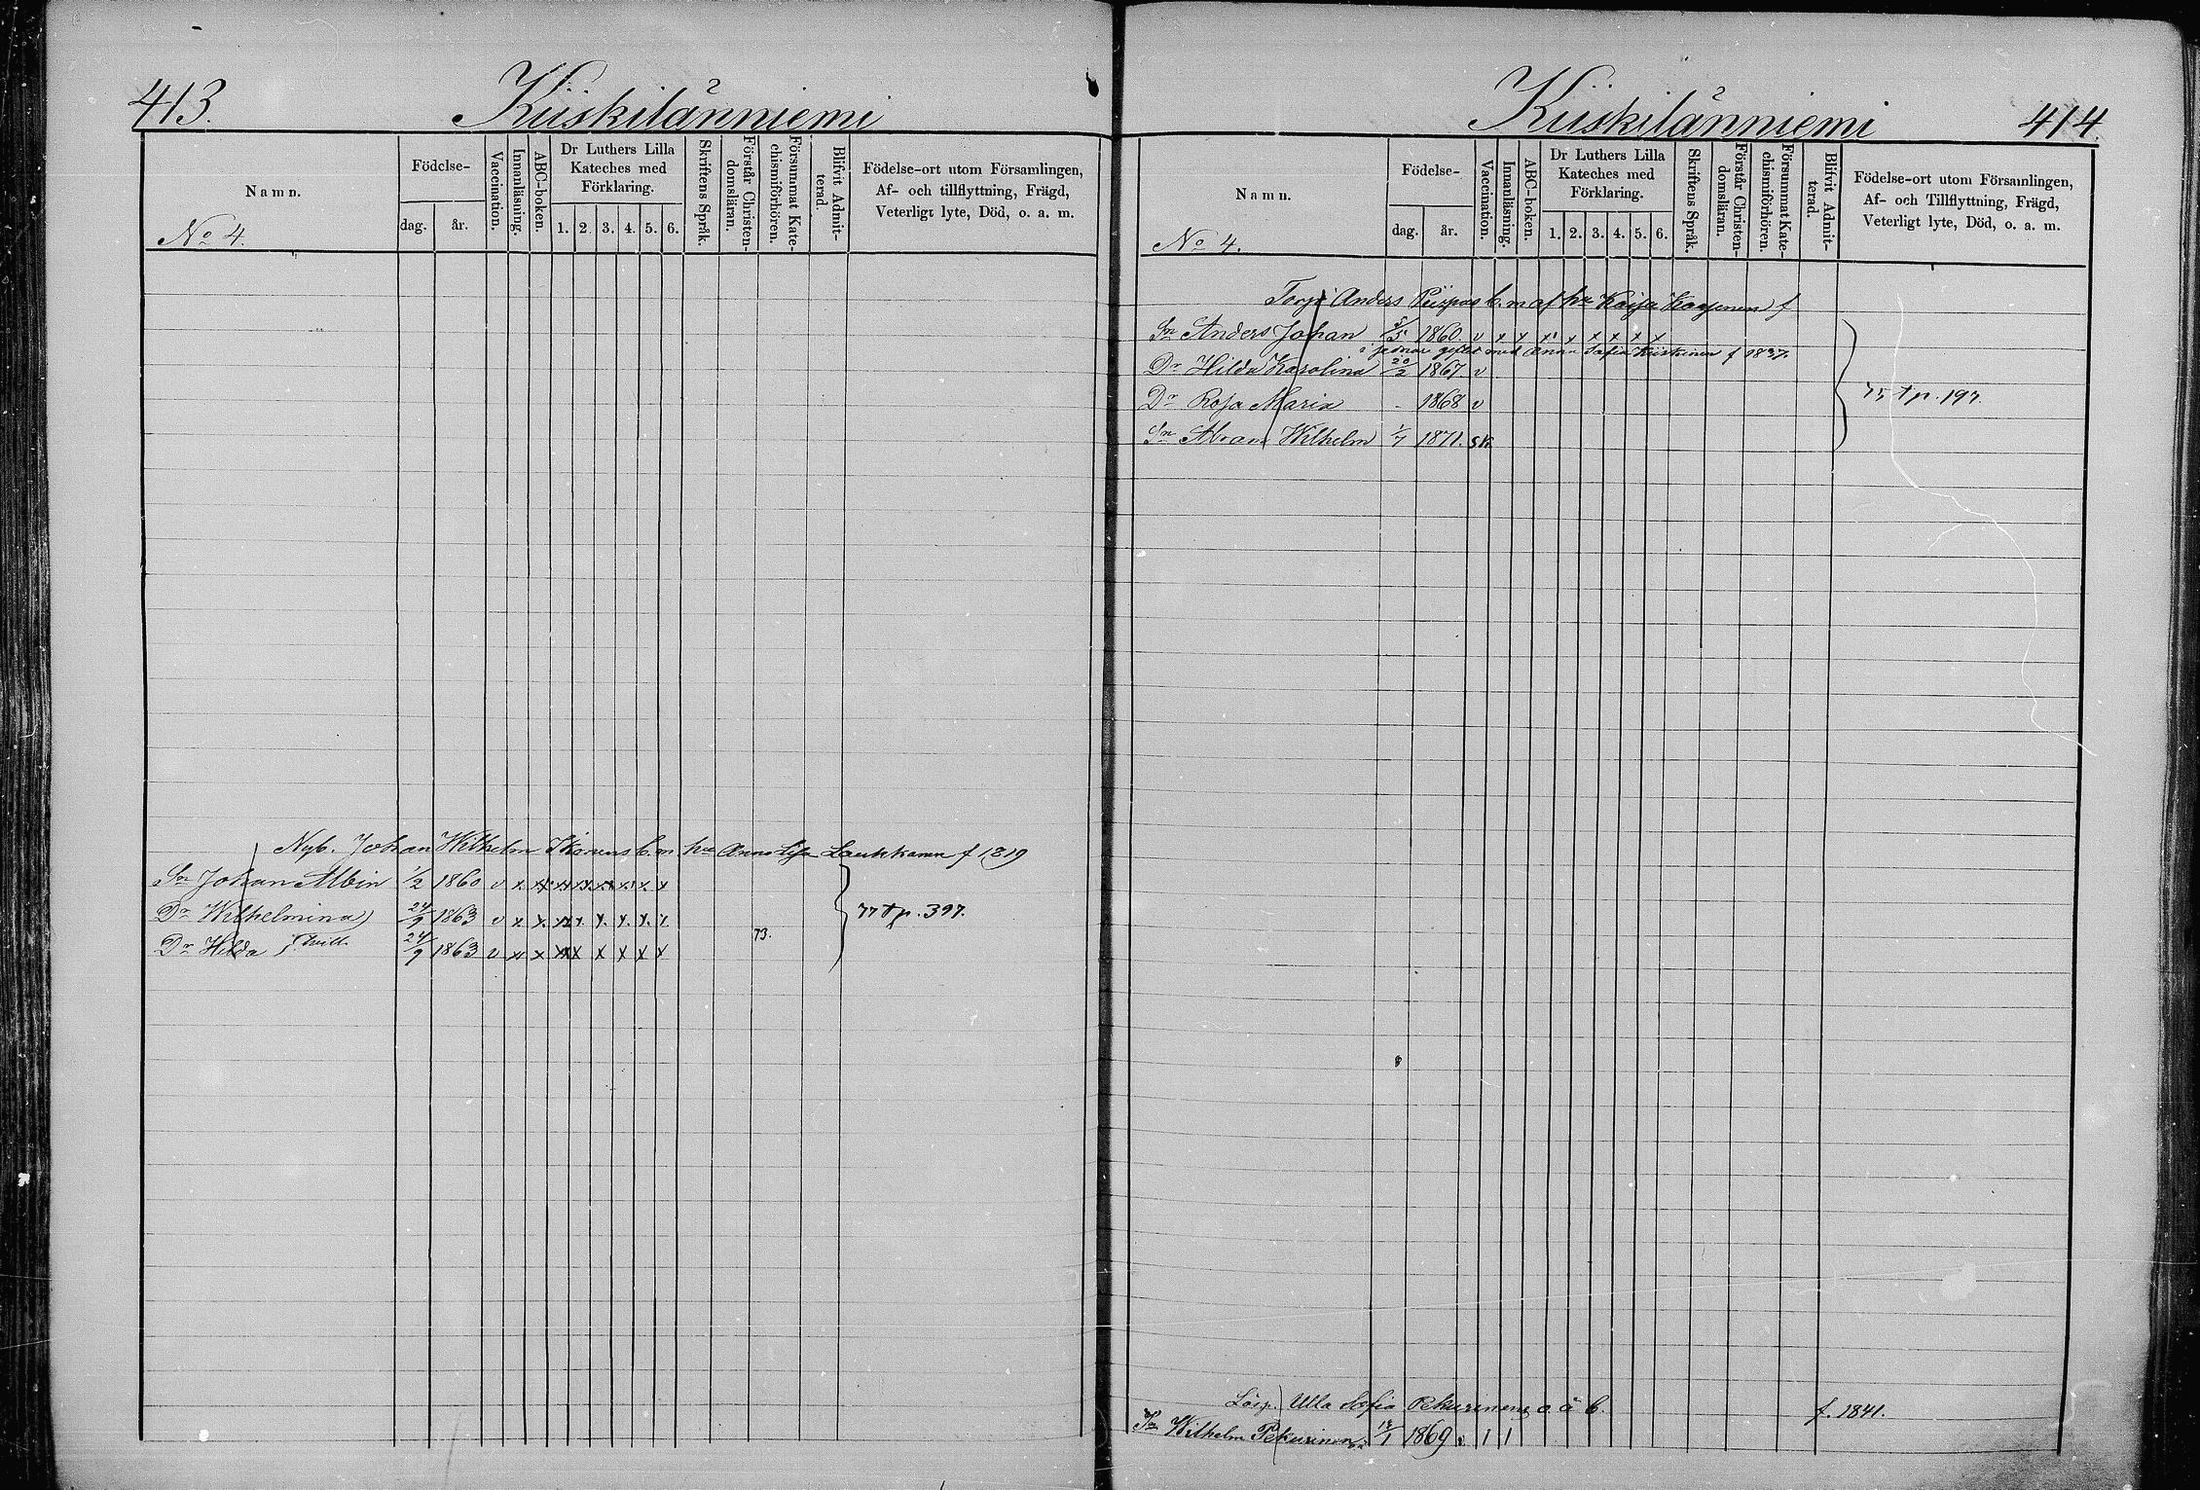 413.
Kiiskilänniemi
Namn.
Födelse-
dag.
år.
Vaccination.
Innanläsning.
ABC-boken.
Dr Luthers Lilla
Kateches med
Förklaring.
1. 2. 3. 4. 5. 6.
Skriftens Språk.
Förstår Christen-
domsläran.
Försummat Kate-
chismiförhören.
Blifvit Admit-
terad.
Födelse-ort utom Församlingen,
Af- och tillflyttning, Frägd,
Veterligt lyte, Död, o. a. m.
No 4.
Nyb. Johan Wilhelm Ikonens b. m. hu Anna Lisa Laukkanen f 1819
Sn Johan Albin 1/2 1860 v x x x x x x x x
Dr Wilhelmina 24/9 1863 v x x x x x x x x
77 tp. 397.
Dr Hilda tvill. 24/9 1863 v x x x x x x x x
73.
Kiiskilänniemi
414.
Namn.
Födelse-
dag.
år.
Vaccination.
Innanläsning.
ABC-boken.
Dr Luthers Lilla
Kateches med
Förklaring.
1. 2. 3. 4. 5. 6.
Skriftens Språk.
Förstår Christen-
domsläran.
Försummat Kate-
chismiförhören.
Blifvit Admit-
terad.
Födelse-ort utom Församlingen,
Af- och Tillflyttning, Frägd,
Veterligt lyte, Död, o. a. m.
No 4.
Torp Anders b. m. af hu Kaisa f
Sn Anders Johan 1860 v x x x x x x x x
gift med Anna Sofia Kiiskinen f 1837.
Dr Hilda Karolina 20/2 1867 v
Dr Rosa Maria - 1868 v
75 tp. 197.
Sn Abram Wilhelm 1/7 1871. sk.
Lösp. Ulla Sofia Pekurinens o. ä. b. f. 1841.
Sn Wilhelm Pekurinen 1869 v 1 1